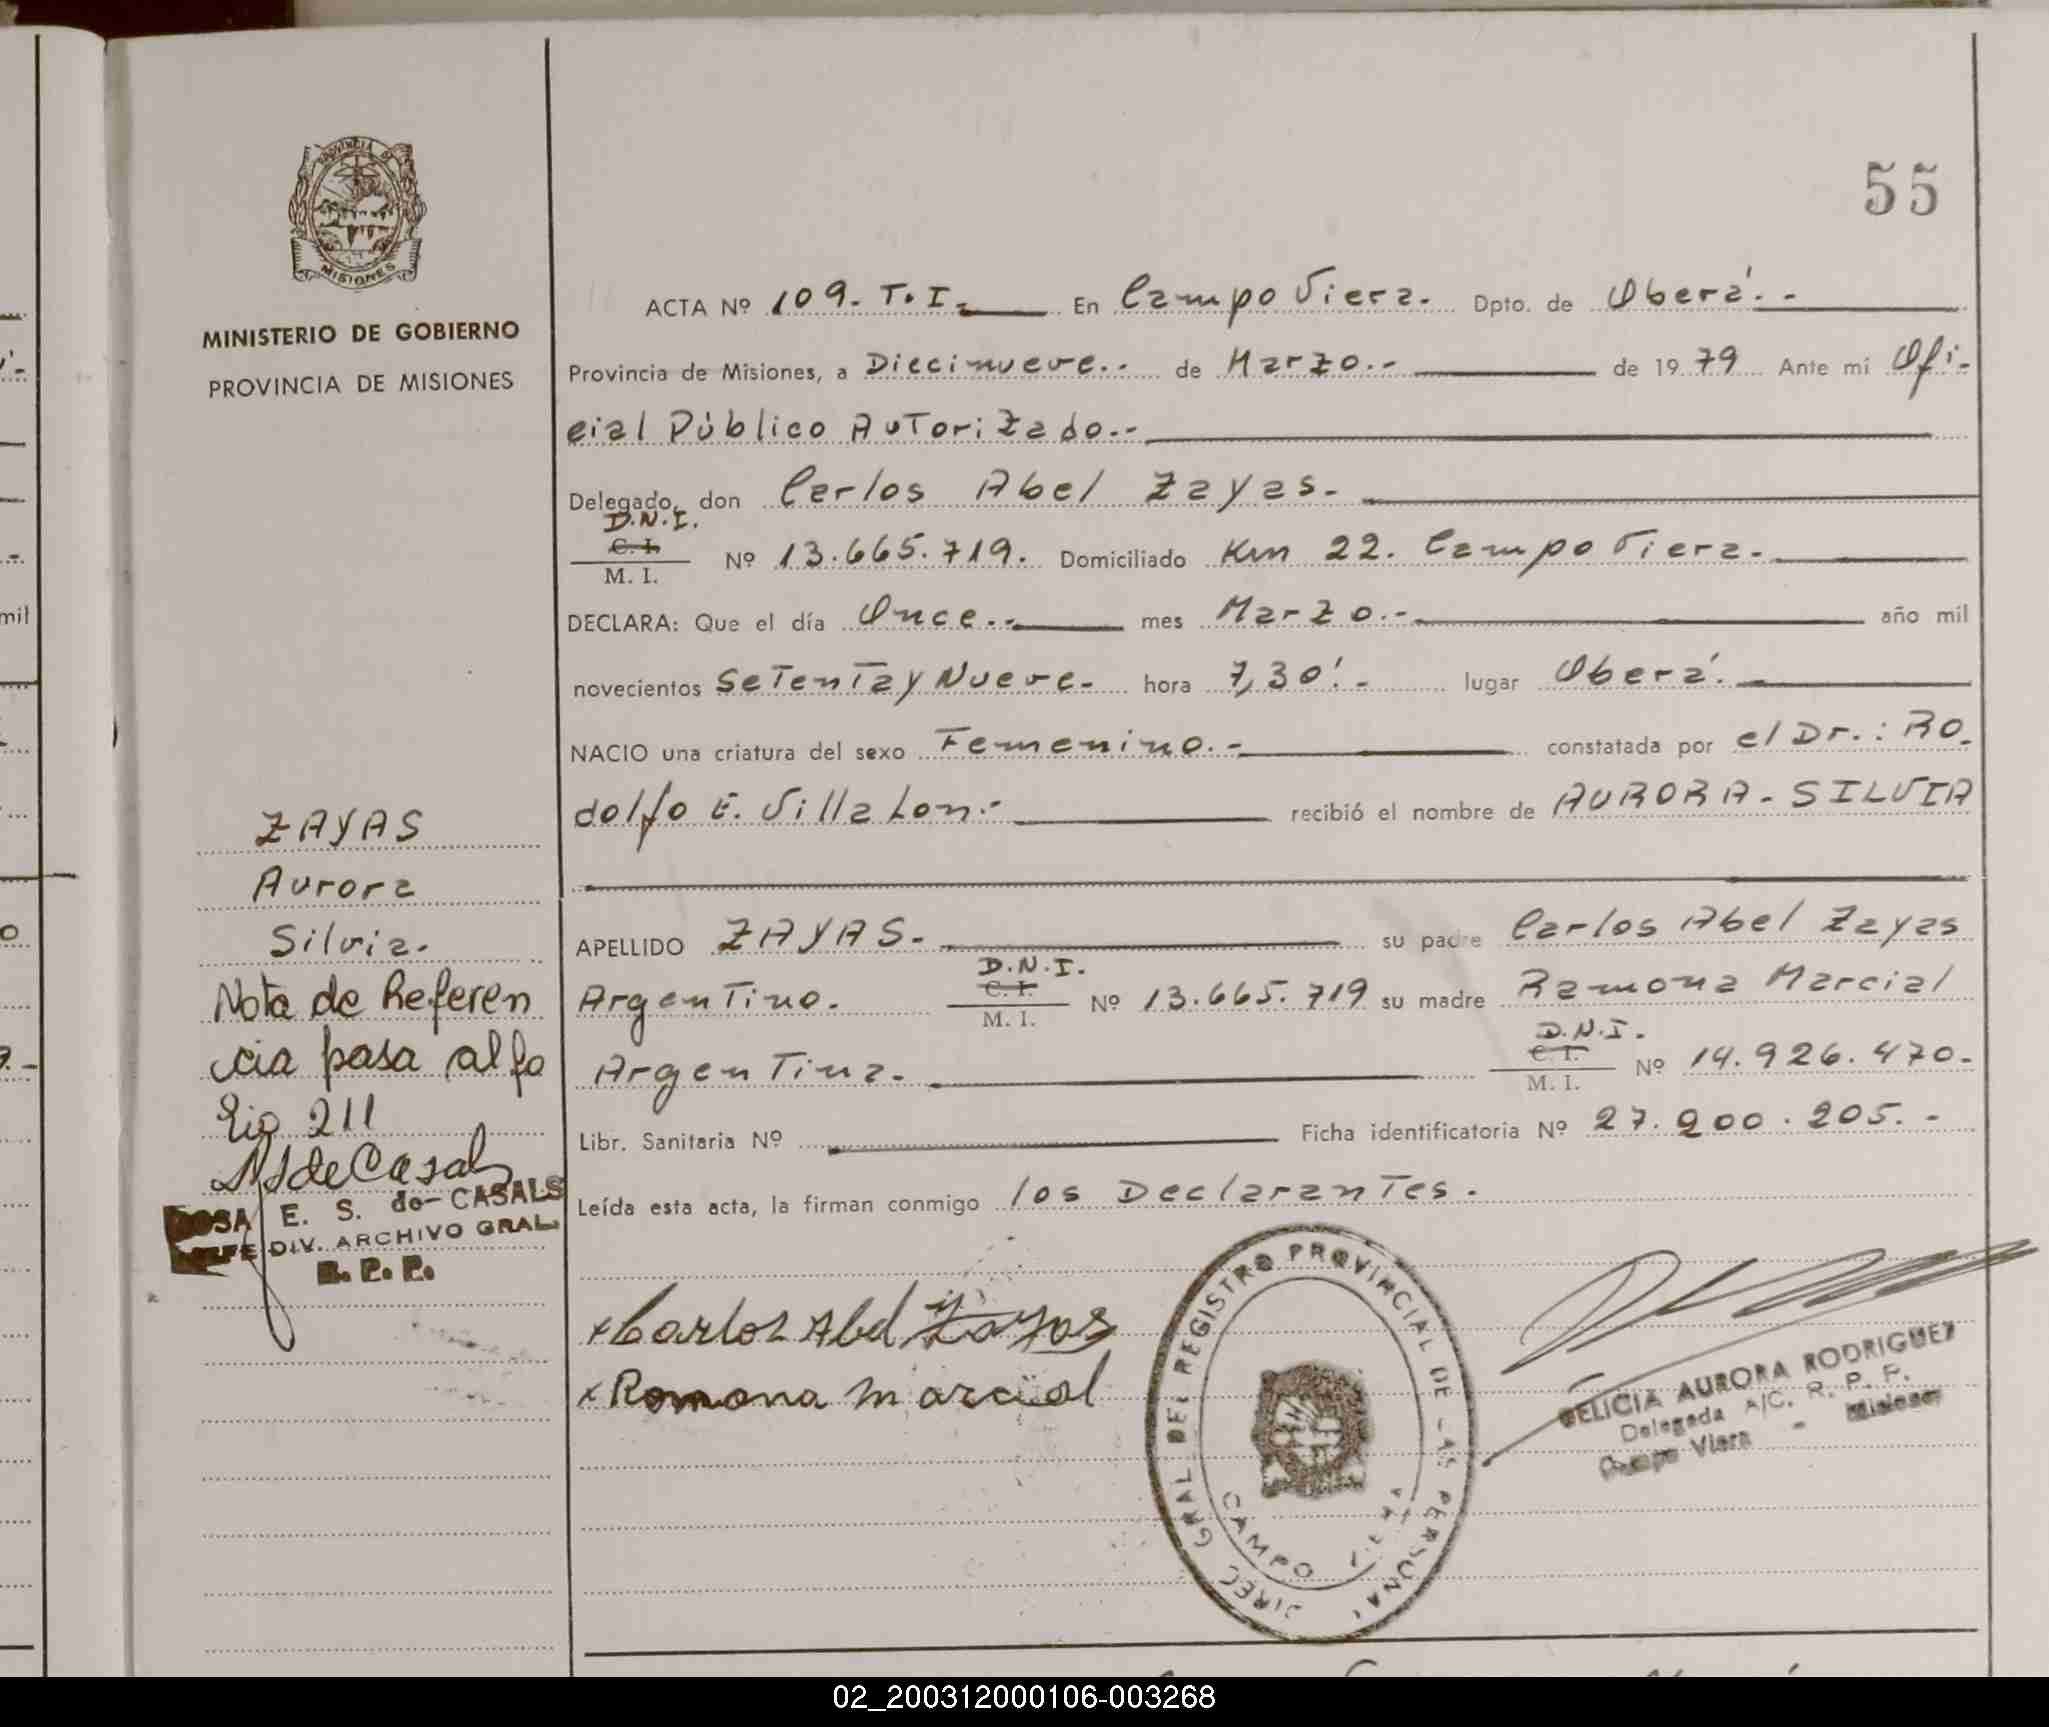 55
MISIONES
MINISTERIO DE GOBIERNO
PROVINCIA DE MISIONES
ACTA Nº 109. T. I. En Campo Viera. Dpto. de Oberá.-
Provincia de Misiones, a Diecinueve.- de Marzo.- de 1979 Ante mi Ofi-
cial Público Autorizado.-
Delegado, don Carlos Abel Zayas.-
D.N.I.
C. I.
M. I. Nº 13.665.719. Domiciliado Km 22. Campo Viera.-
DECLARA: Que el día Once.- mes Marzo.- año mil
novecientos Setenta y Nueve.- hora 7,30'.- lugar Oberá.-
NACIO una criatura del sexo Femenino.- constatada por el Dr.: Ro-
dolfo E. Villalon.- recibió el nombre de AURORA - SILVIA
APELLIDO ZAYAS.- su padre Carlos Abel Zayas
Argentino. D.N.I. C. I. M. I. Nº 13.665.719 su madre Ramona Marcial
Argentina. D.N.I. C. I. M. I. Nº 14.926.470.-
Libr. Sanitaria Nº Ficha identificatoria Nº 27.200.205.-
Leída esta acta, la firman conmigo los Declarantes.
x Carlos Abel Zayas
x Ramona Marcial
DIREC GRAL DEL REGISTRO PROVINCIAL DE LAS PERSONAS
CAMPO VIERA
DELICIA AURORA RODRIGUEZ
Delegada A/C. R. P. P.
Campo Viera - Misiones
ZAYAS
Aurora
Silvia.
Nota de Referen
cia pasa al fo
lio 211
ROSA E. S. de CASALS
JEFE DIV. ARCHIVO GRAL
R. P. P.
mil
02_200312000106-003268